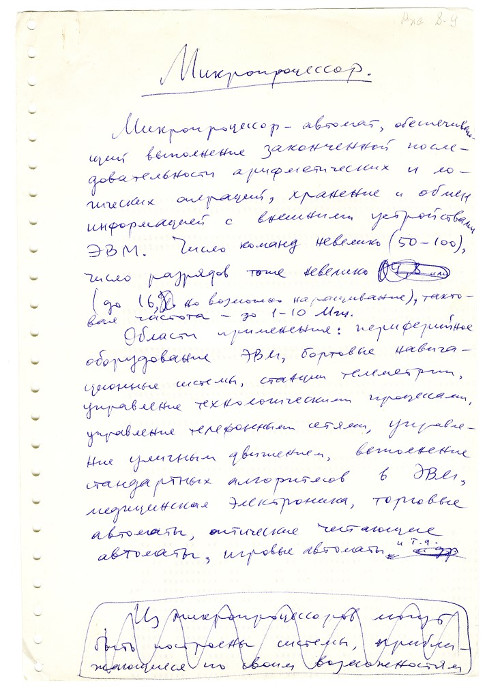 Для В-У
Микропроцессор.
Микропроцессор - автомат, обеспечиваю-
щий выполнение законченной после-
довательности арифметических и ло-
гических операций, хранение и обмен
информацией с внешними устройствами
ЭВМ. Число команд невелико (50-100),
число разрядов тоже невелико
(до 16, но возможно наращивание), такто-
вая частота - до 1-10 Мгц.
Области применения: периферийное
оборудование ЭВМ, бортовые навига-
ционные системы, станции телеметрии,
управление технологическими процессами,
управление телефонными сетями, управле-
ние уличным движением, выполнение
стандартных алгоритмов в ЭВМ,
медицинская электроника, торговые
автоматы, оптические читающие
автоматы, игровые автоматы и т.д.
Из микропроцессоров могут
быть построены системы, прибли-
жающиеся по своим возможностям